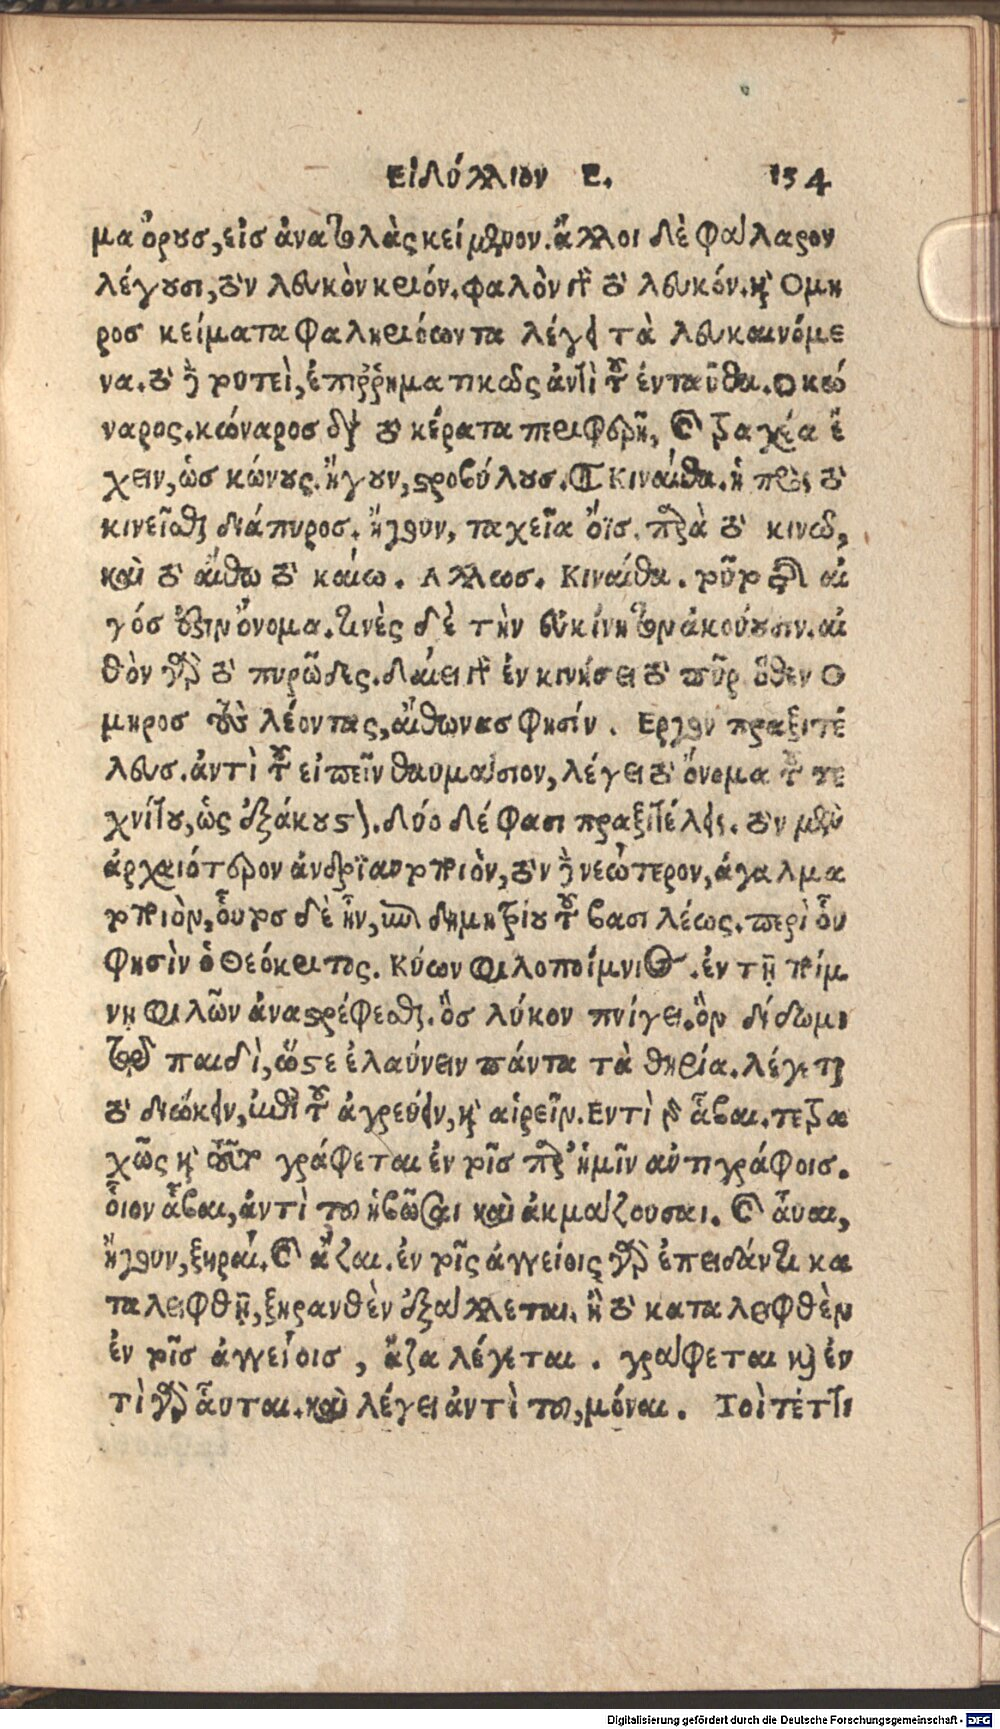 Εἰδύλλιον Ε. 134
μα ὄρους, εἰς ἀνατολὰς κείμενον. ἄλλοι δὲ φάλαρον
λέγουσι, τὸν λευκὸν κριόν. φαλὸν γὰρ τὸ λευκόν. καὶ Ομη
ρος κείματα φαληριόωντα λέγει τὰ λευκαινόμε
να. τὸ δὲ τουτεὶ, ἐπιῤῥηματικῶς ἀντὶ τοῦ ἐνταῦθα. Ο κώ
ναρος. κώναρος διὰ τὸ κέρατα περιφερῆ, καὶ βραχέα ἔ
χειν, ὡς κώνους. ἤγουν, στροβύλους. Α Κιναίθα. ἡ πρὸς τὸ
κινεῖσθαι διάπυρος. ἤγουν, ταχεῖα ὄϊς. παρὰ τὸ κινῶ,
καὶ τὸ αἴθω τὸ καίω. Αλλως. Κιναίθα. τοῦτο καὶ αἰ
γός ἐστιν ὄνομα. τινὲς δὲ τὴν εὐκίνητον ἀκούουσιν. αἰ
θὸν γὰρ τὸ πυρῶδες. δαίει γὰρ ἐν κινήσει τὸ πῦρ ὅθεν Ο
μηρος τοὺς λέοντας, αἴθωνας φησίν. Εργον πραξιτέ
λευς. ἀντὶ τοῦ εἰπεῖν θαυμάσιον, λέγει τὸ ὄνομα τοῦ τε
χνίτου, ὡς ἐξάκουστον. δύο δέ φασι πραξιτέλεις. τὸν μὲν
ἀρχαιότερον ἀνδριαντοποιὸν, τὸν δὲ νεώτερον, ἀγαλμα
τοποιὸν, οὗτος δὲ ἦν, ἐπὶ δημητρίου τοῦ βασιλέως. περὶ οὗ
φησὶν ὁ Θεόκριτος. Κύων φιλοποίμνιος. ἐν τῇ ποίμ
νῃ φιλῶν ἀναστρέφεσθαι. ὃς λύκον πνίγει. ὃν δίδωμι
τῷ παιδὶ, ὥστε ἐλαύνειν πάντα τὰ θηρία. λέγεται
τὸ διώκειν, ἐπὶ τοῦ ἀγρεύειν, καὶ αἱρεῖν. Εντὶ δὲ ἆβαι. τετρα
χῶς καὶ τοῦτο γράφεται ἐν τοῖς παρ᾽ ἡμῖν αὐτιγράφοις.
οἷον ἇβαι, ἀντὶ τοῦ ἡβῶσαι καὶ ἀκμάζουσαι. καὶ αὖαι,
ἤγουν, ξηραί. καὶ ἄζαι. ἐν τοῖς ἀγγείοις γὰρ ἐπειδάν τι κα
ταλειφθῇ, ξηρανθὲν ἐξάλλεται. ἢ τὸ καταλειφθὲν
ἐν τοῖς ἀγγείοις, ἄζα λέγεται. γράφεται καὶ ἐν
τὶ γὰρ αὗται. καὶ λέγει ἀντὶ τοῦ, μόναι. Τοὶ τέττι
Digitalisierung gefördert durch die Deutsche Forschungsgemeinschaft - DFG